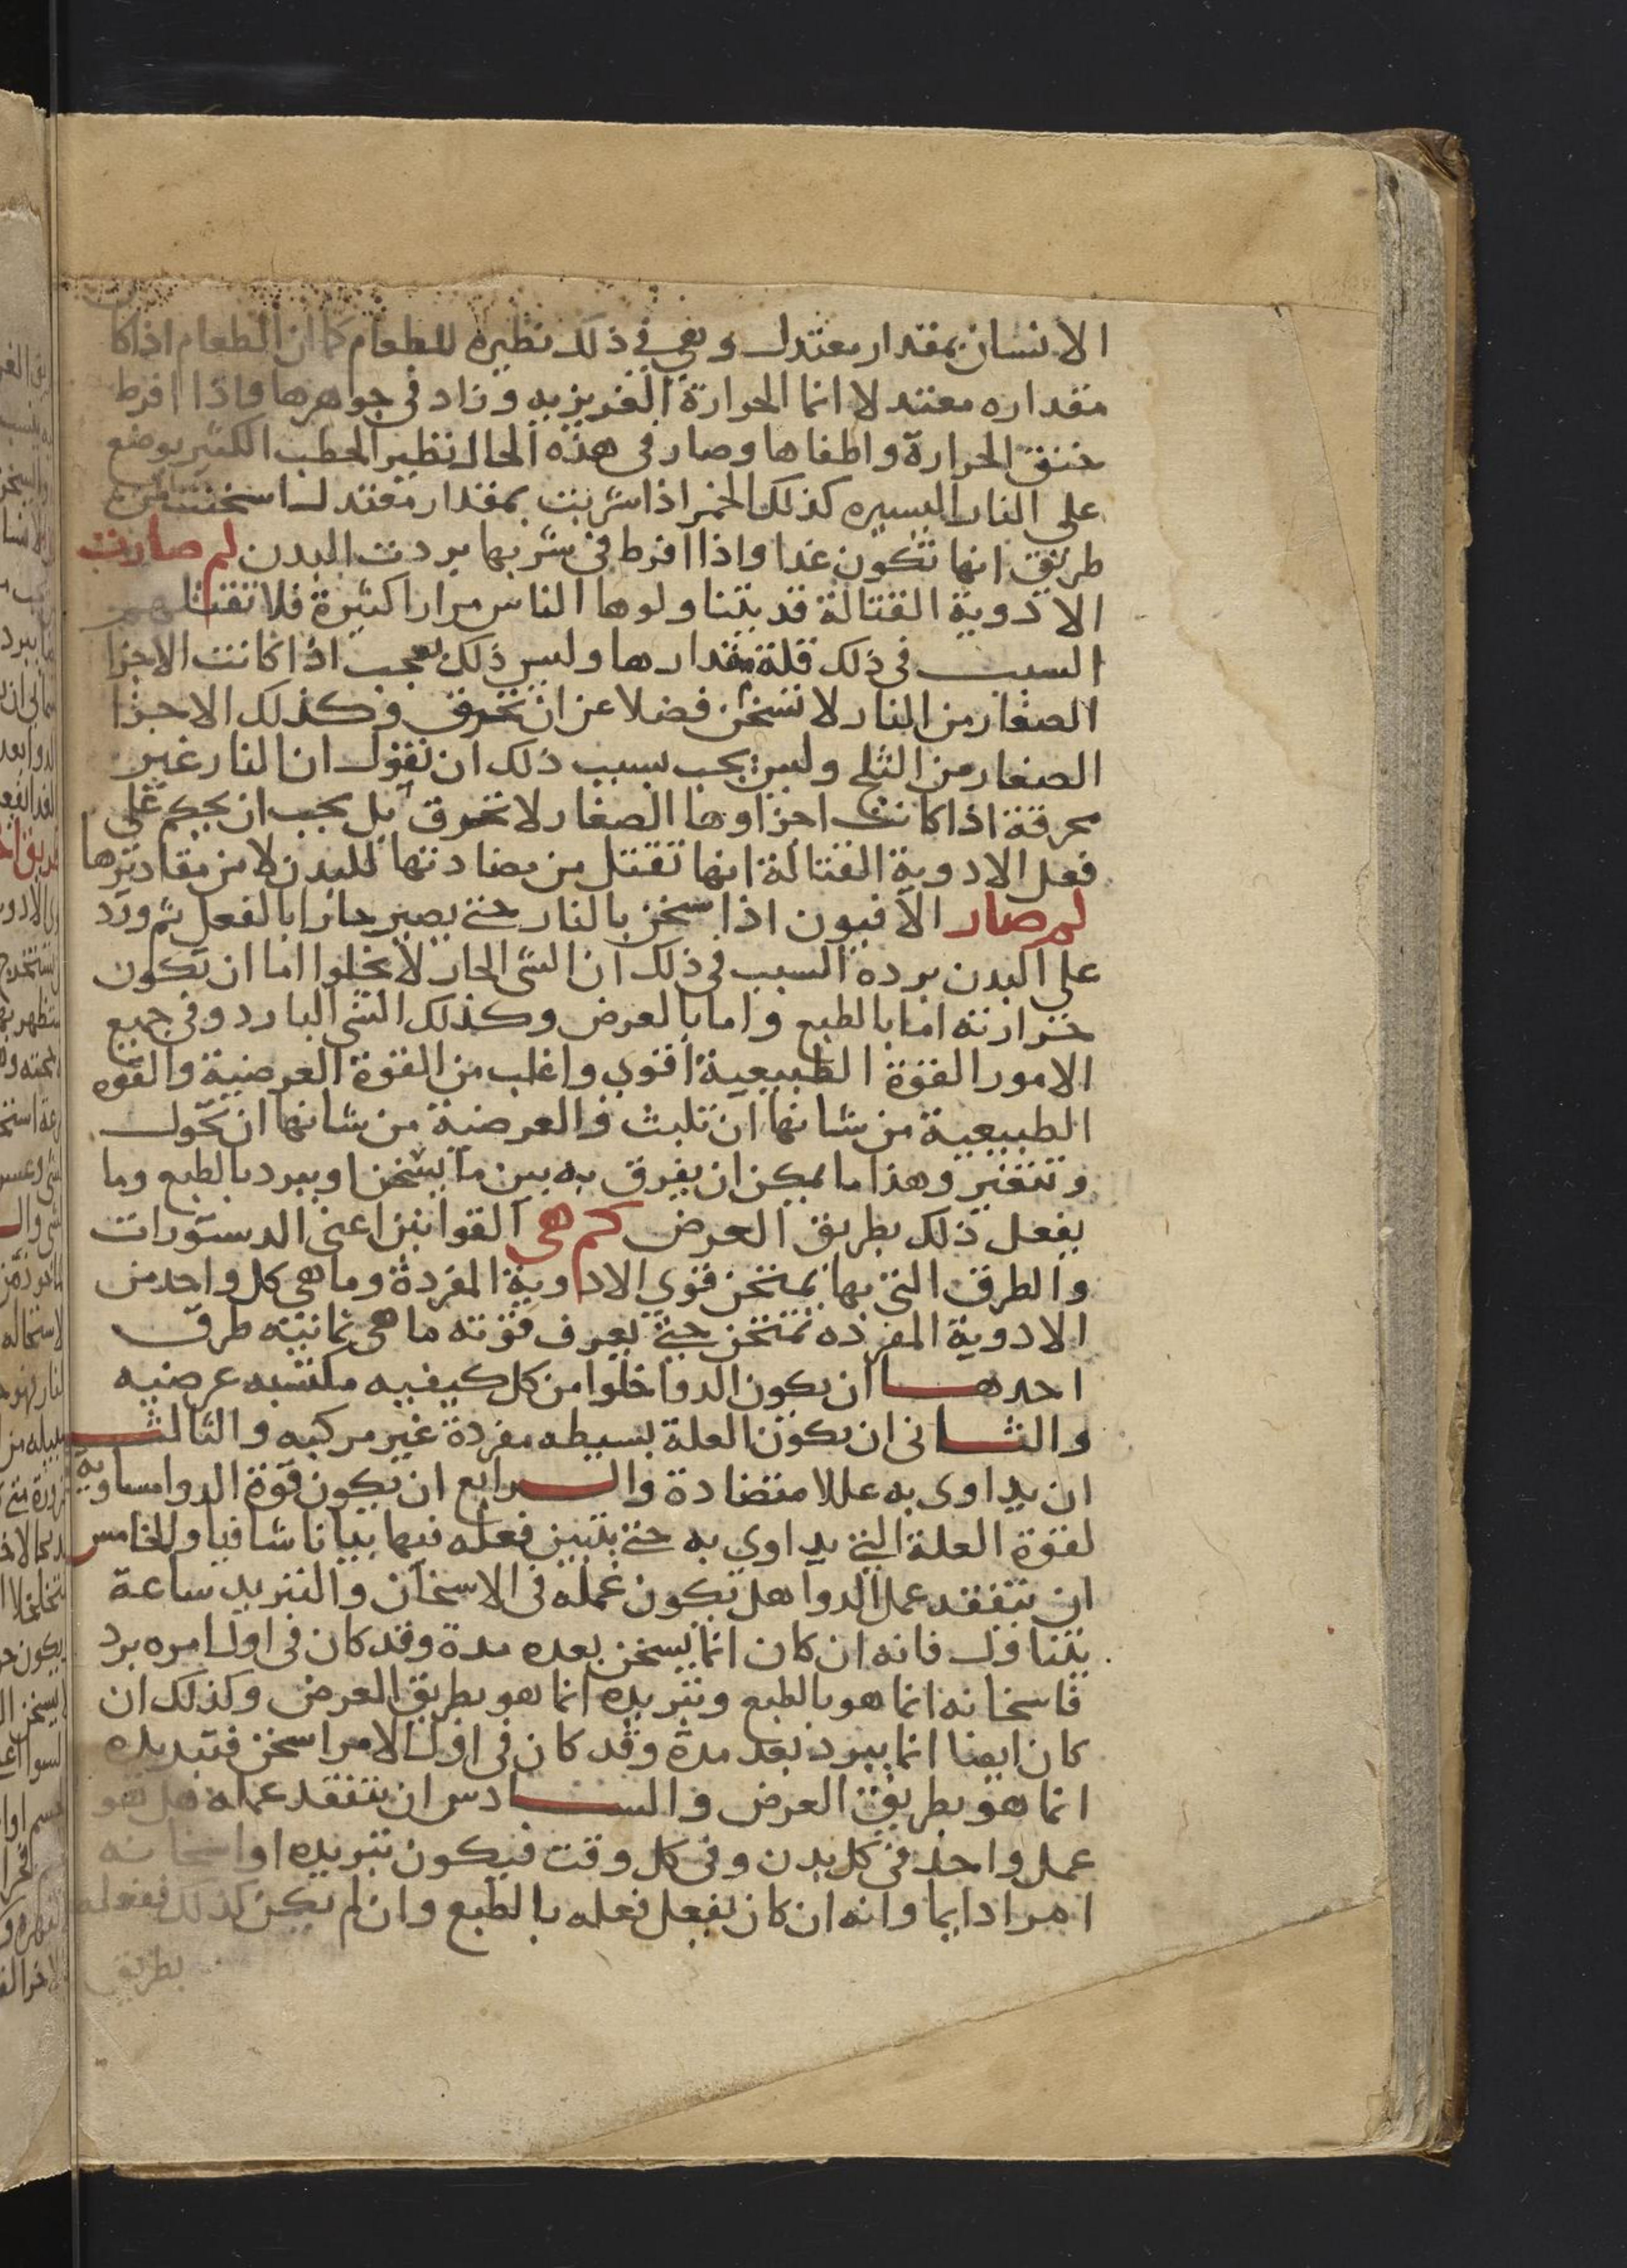 الانسان بمقدار معتدل وهي في ذلك نظيره للطعام كما ان الطعام اذا كا
مقداره معتدلا انما الحرارة الغريزيه وزاد في جوهرها واذا افرط
خنق الحرارة واطفاها وصار في هذه الحال نظير الحطب الكثير يوضع
على النار اليسيره كذلك الخمر اذا شربت بمقدار معتدل اسخنت من
طريق انها تكون غدا واذا افرط في شربها بردت البدن لم صارت
الادوية القتالة قد يتناولوها الناس مرارا كثيرة فلا تقتلهم
السبب في ذلك قلة مقدارها وليس ذلك بعجب اذا كانت الاجزا
الصغار من النار لا تسخن فضلا عن ان تحرق وكذلك الاجزا
الصغار من الثلج وليس يجب بسبب ذلك ان نقول ان النار غير
محرقة اذا كانت اجزاوها الصغار لا تحرق بل يجب ان يحكم على
فعل الادوية القتالة انها تقتل من مضادتها للبدن لا من مقاديرها
لم صار الافيون اذا سخن بالنار حتى يصير حارا بالفعل ثم ورد
على البدن برده السبب في ذلك ان الشى الحار لا يخلوا اما ان تكون
حرارته اما بالطبع واما بالعرض وكذلك الشى البارد وفى جميع
الامور القوة الطبيعية اقوى واغلب من القوة العرضية والقوه
الطبيعية من شانها ان تلبث والعرضية من شانها ان تحول
وتتغير وهذا ما يمكن ان يفرق به بين ما يسخن او يبرد بالطبع وما
يفعل ذلك بطريق العرض كم هى القوانين اعنى الدستورات
والطرق التي بها يمتحن قوى الادوية المفردة وما هي كل واحد من
الادوية المفرده تمتحن حتى يعرف قوته ما هى ثمانيه طرق
احدها ان يكون الدوا خلوا من كل كيفيه مكتسبه عرضيه
والثانى ان يكون العلة بسيطه مفردة غير مركبه والثالث
ان يداوى به عللا متضادة والرابع ان يكون قوة الدوا مساوية
لقوة العلة التي يداوى به حتى يتبين فعله فيها بيانا شافيا والخامس
ان يتفقد عمل الدوا هل يكون عمله فى الاسخان والتبريد ساعة
يتناول فانه ان كان انما يسخن بعده مدة وقد كان فى اول امره برد
فاسخانه انما هو بالطبع وتبريده انما هو بطريق العرض وكذلك ان
كان ايضا انما يبرد بعد مدة وقد كان فى اول الامر اسخن فتبديله
انما هو بطريق العرض والسادس ان يتفقد عمله هل هو
عمل واحد في كل بدن وفى كل وقت فيكون تبريده او اسخانه
امرا دايما وانه ان كان يفعل فعله بالطبع وان لم يكن كذلك ففعله
بطريق